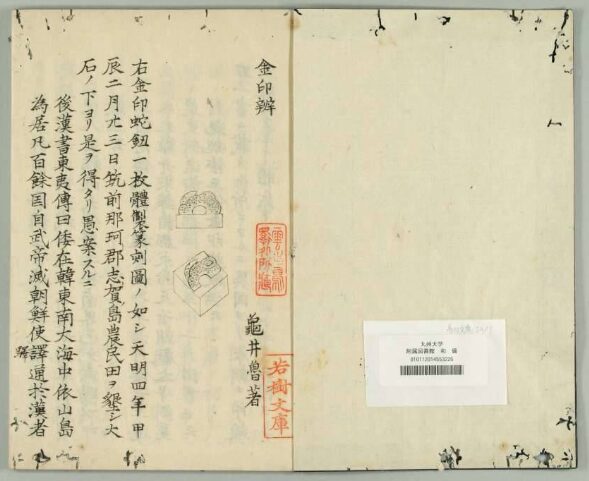 金印辨
龜井魯著
右金印蛇鈕一枚體製篆刻圖ノ如シ天明四年甲
辰二月廿三日筑前那珂郡志賀島農民田ヲ墾シ大
石ノ下ヨリ是ヲ得タリ愚案スルニ
後漢書東夷傳曰倭在韓東南大海中依山島
為居凡百餘国自武帝滅朝鮮使譯通於漢者
驛
若樹文庫
九州大学
附属図書館 和 儀
010112014553226